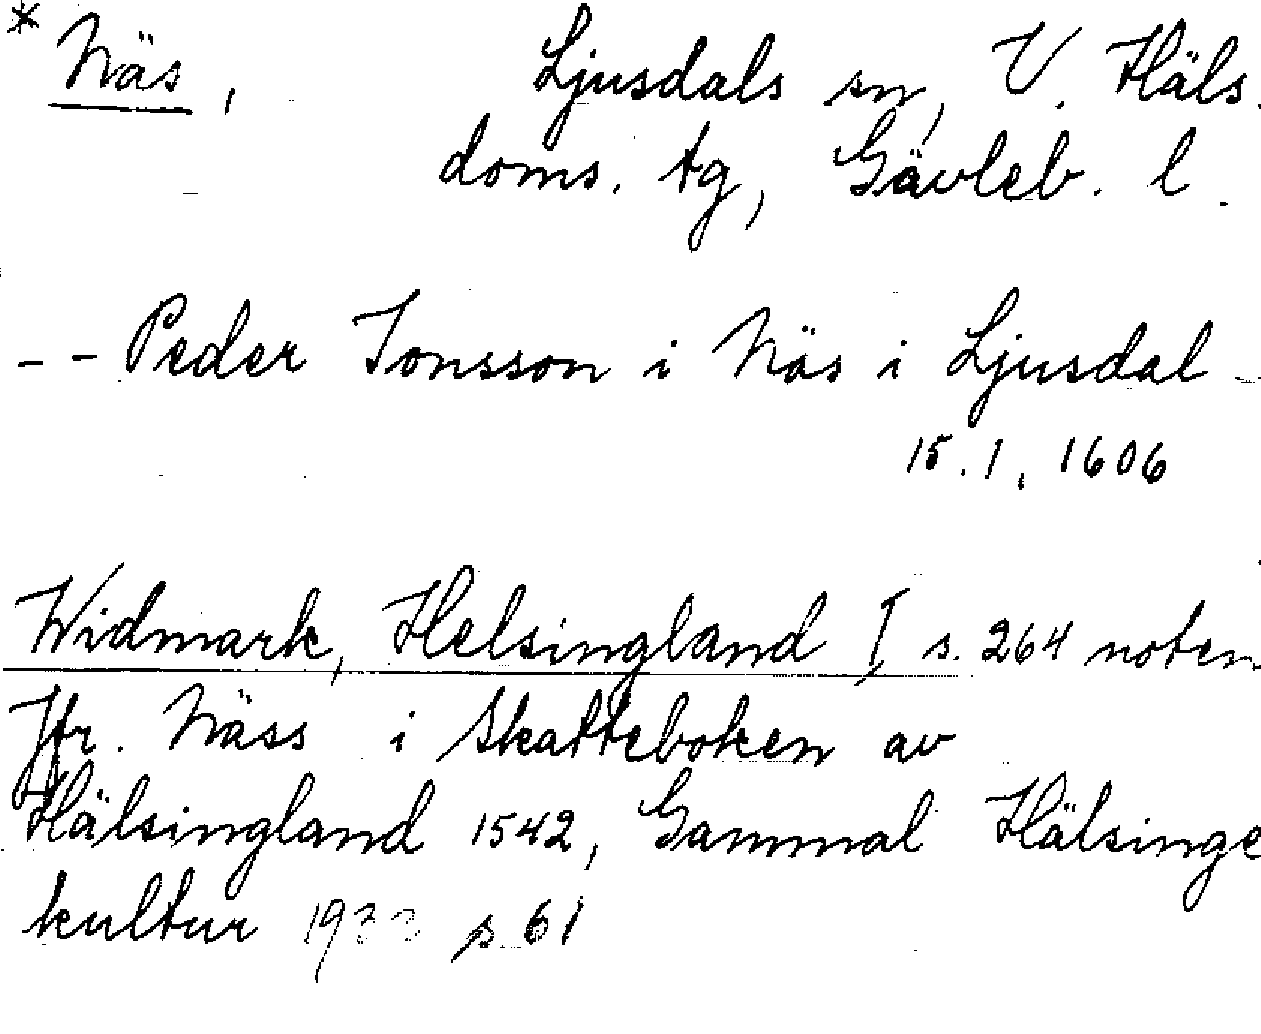 * Näs, Ljusdals sn, V. Häls.
doms. tg, Gävleb. l.
- - Peder Jonsson i Näs i Ljusdal -
15.1. 1606
Widmark, Helsingland I s. 264 noten
Jfr. Näss i Skatteboken av
Hälsingland 1542, Gammal Hälsinge
kultur 1933 s. 61